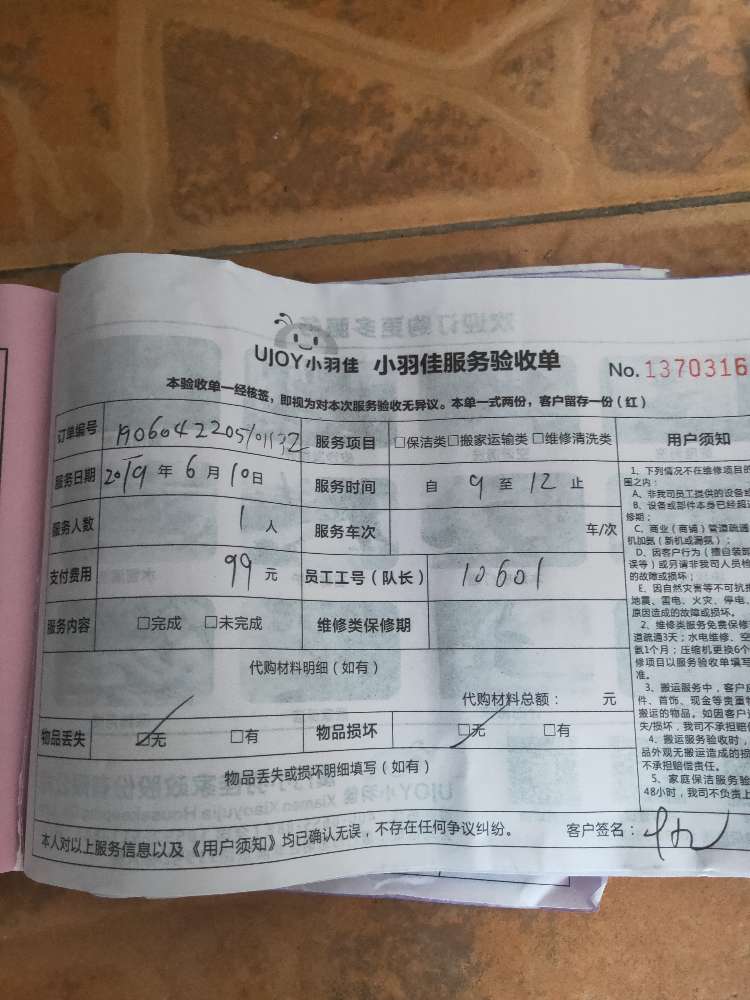 UJOY小羽佳 小羽佳服务验收单
No. 1370316
本验收单一经核签，即视为对本次服务验收无异议。本单一式两份，客户留存一份（红）
订单编号 服务项目 □保洁类□搬家运输类□维修清洗类 用户须知
服务日期 2019年6月10日 服务时间 自 9 至 12 止
服务人数 1人 服务车次 车/次
支付费用 99元 员工工号（队长） 10601
服务内容 □完成 □未完成 维修类保修期
代购材料明细（如有）
代购材料总额： 元
物品丢失 □无 □有 物品损坏 □无 □有
物品丢失或损坏明细填写（如有）
本人对以上服务信息以及《用户须知》均已确认无误，不存在任何争议纠纷。 客户签名：
1、下列情况不在维修项目的
围之内：
A、非我司员工提供的设备或
B、设备或部件本身已经超
修期；
C、商业（商铺）管道疏通
机加氨（新机或漏氨）；
D、因客户行为（擅自装卸
误等）或另请非我司人员检
的故障或损坏；
E、因自然灾害等不可抗
地震、雷电、火灾、停电、
原因造成的故障或损坏。
2、维修类服务免费保修
道疏通3天；水电维修、空
氨1个月；压缩机更换6个
修项目以服务验收单填写
准。
3、搬运服务中，客户
件、首饰、现金等贵重
搬运的物品。如因客户
失/损坏，我司不承担赔
4、搬运服务验收时，
品外观无搬运造成的损
不承担赔偿责任。
5、家庭保洁服务验
48小时，我司不负责上